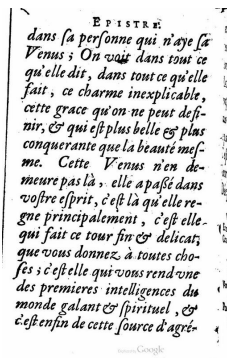 EPISTRE.
dans ſa perſonne qui n'aye ſa
Venus ; On voit dans tout ce
qu'elle dit, dans tout ce qu'elle
fait, ce charme inexplicable,
cette grace qu'on ne peut defi-
nir, & qui eſt plus belle & plus
conquerante que la beauté meſ-
me. Cette Venus n'en de-
meure pas là, elle a paßé dans
voſtre eſprit, c'eſt là qu'elle re-
gne principalement, c'eſt elle
qui fait ce tour fin & delicat,
que vous donnez à toutes cho-
ſes ; c'eſt elle qui vous rend vne
des premieres intelligences du
monde galant & ſpirituel, &
c'eſt enfin de cette ſource d'agré-
Google